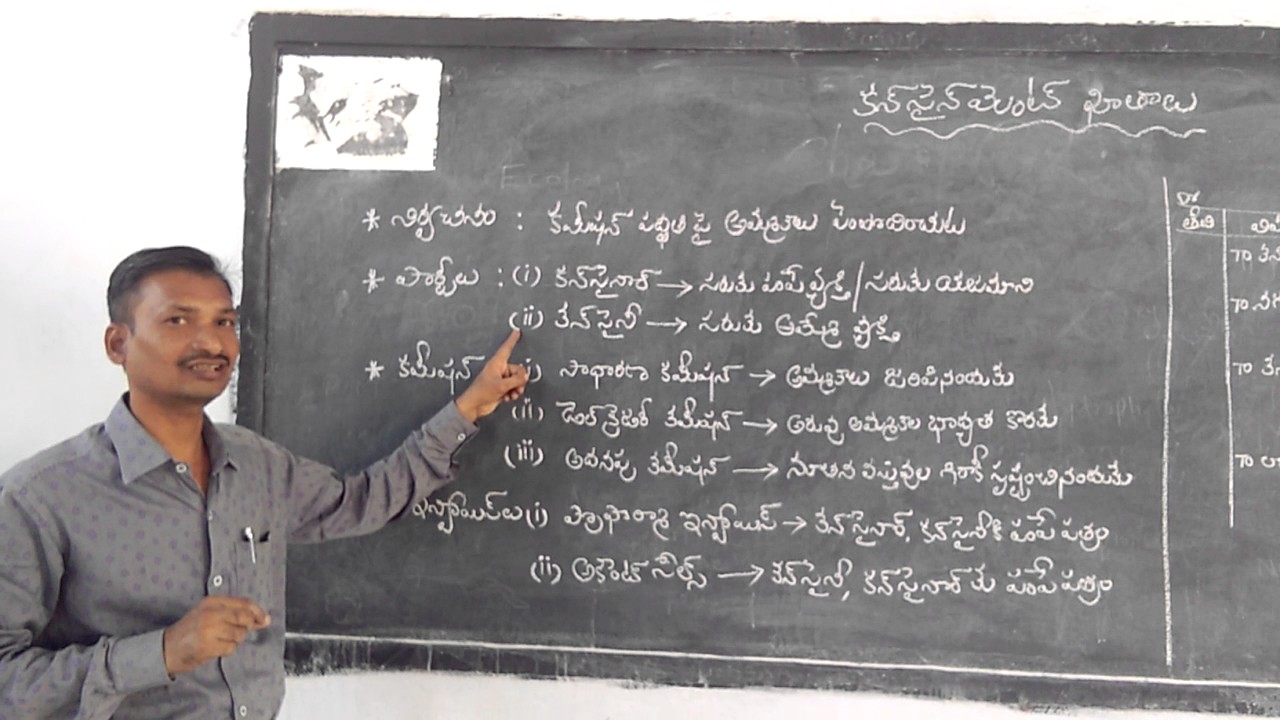 కన్‌సైన్‌మెంట్ ఖాతాలు
Ecology
* నిర్వచనం : కమీషన్ పద్ధతి పై అమ్మకాలు పెంపొందించుట
* పార్టీలు : (i) కన్‌సైనార్ → సరుకు పంపే వ్యక్తి / సరుకు యజమాని
(ii) కన్‌సైనీ → సరుకు అమ్మే వ్యక్తి
* కమీషన్ (i) సాధారణ కమీషన్ → అమ్మకాలు జరిపినందుకు
(ii) డెల్‌క్రెడరీ కమీషన్ → అరువు అమ్మకాల బాధ్యత కొరకు
(iii) అదనపు కమీషన్ → నూతన వస్తువుల గిరాకీ సృష్టించినందుకు
ఇన్వాయిస్‌లు (i) ప్రొఫార్మా ఇన్వాయిస్ → కన్‌సైనార్, కన్‌సైనీకి పంపే పత్రం
(ii) అకౌంట్ సేల్స్ → కన్‌సైనీ, కన్‌సైనార్ కు పంపే పత్రం
డా
తేది